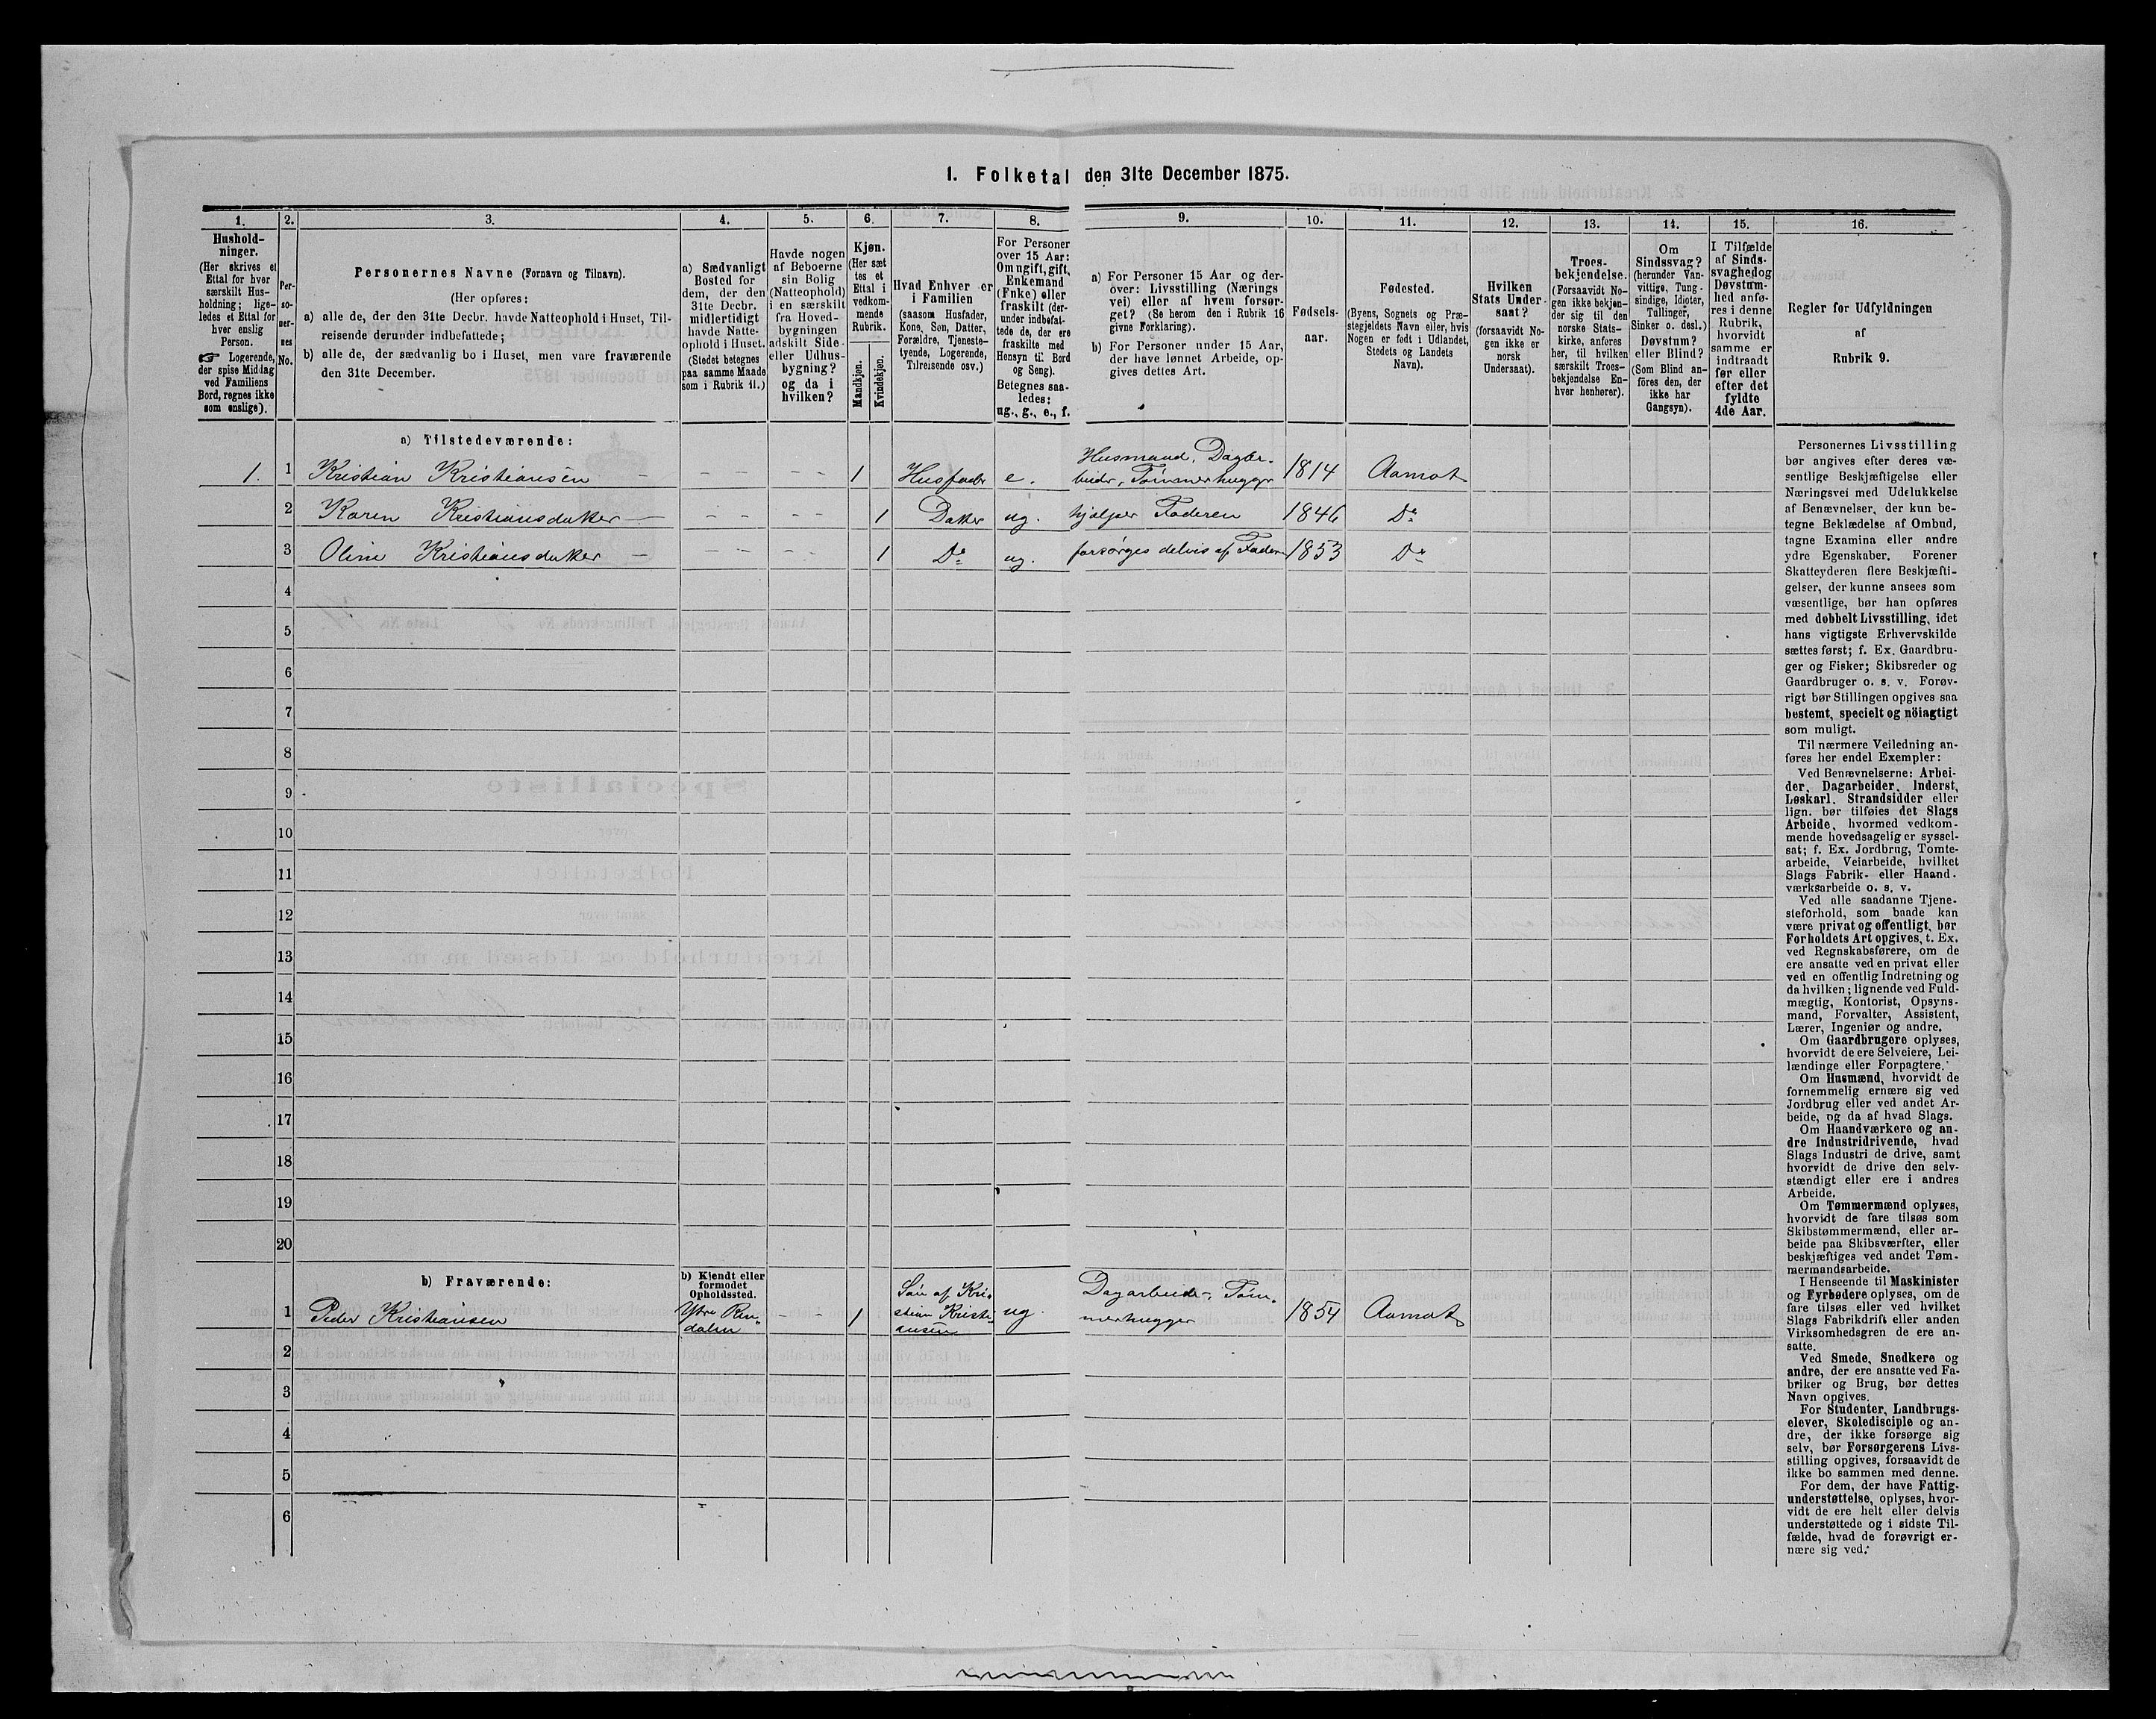 1. Folketal den 31te December 1875.
1. 2. 3. 4. 5. 6. 7. 8. 9. 10. 11. 12. 13. 14. 15. 16.
Hushold-
ninger.
(Her skrives et
Ettal for hver
særskilt Hus-
holdning; lige-
ledes et Ettal for
hver enslig
Person.
☞ Logerende,
der spise Middag
ved Familiens
Bord, regnes ikke
som enslige).
Per-
so-
ner-
nes
No.
Personernes Navne (Fornavn og Tilnavn).
(Her opføres:
a) alle de, der den 31te Decbr. havde Natteophold i Huset, Til-
reisende derunder indbefattede;
b) alle de, der sædvanlig bo i Huset, men vare fraværende
den 31te December.
a) Sædvanligt
Bosted for
dem, der den
31te Decbr.
midlertidigt
havde Natte-
ophold i Huset.
(Stedet betegnes
paa samme Maade
som i Rubrik 11.)
Havde nogen
af Beboerne
sin Bolig
(Natteophold)
i en særskilt
fra Hoved-
bygningen
adskilt Side-
eller Udhus-
bygning?
og da i
hvilken?
Kjøn.
(Her sæt
tes et
Ettal i
vedkom-
mende
Rubrik.
Mandkjøn.
Kvindekjøn.
Hvad Enhver er
i Familien
(saasom Husfader,
Kone, Søn, Datter,
Forældre, Tjeneste-
tyende, Logerende,
Tilreisende osv.)
For Personer
over 15 Aar:
Om ugift, gift,
Enkemand
(Enke) eller
fraskilt (der-
under indbefat-
tede de, der ere
fraskilte med
Hensyn til Bord
og Seng).
Betegnes saa-
ledes:
ug., g., e., f.
a) For Personer 15 Aar og der-
over: Livsstilling (Nærings
vei) eller af hvem forsør-
get? (Se herom den i Rubrik 16
givne Forklaring).
b) For Personer under 15 Aar,
der have lønnet Arbeide, op-
gives dettes Art.
Fødsels-
aar.
Fødested.
(Byens, Sognets og Præ-
stegjeldets Navn eller, hvis
Nogen er født i Udlandet,
Stedets og Landets
Navn).
Hvilken
Stats Under-
saat?
(forsaavidt No-
gen ikke er
norsk
Undersaat).
Troes-
bekjendelse.
(Forsaavidt No-
gen ikke bekjen-
der sig til den
norske Stats-
kirke, anføres
her, til hvilken
særskilt Troes-
bekjendelse En-
hver henhører).
Om
Sindssvag?
(herunder Van-
vittige, Tung-
sindige, Idioter,
Tullinger,
Sinker o. desl.)
Døvstum?
eller Blind?
(Som Blind an-
föres den, der
ikke har
Gangsyn).
I Tilfælde
af Sinds-
svaghed og
Døvstum-
hed anfø-
res i denne
Rubrik,
hvorvidt
samme er
indtraadt
før eller
efter det
fyldte
4de Aar.
Regler for Udfyldningen
af
Rubrik 9.
a) Tilstedeværende:
1. 1 Kristian Kristiansen - - - - - - 1 Husfader e. Husmand, Dagar-
beider, Tømmerhugger 1814 Aamot
2 Karen Kristiansdatter - - - - - 1 Datter ug. hjælper Faderen 1846 Do
3 Oline Kristiansdatter - - - - - - 1 Do ug. forsørges delvis af Faderen 1853 Do
4
5
6
7
8
9
10
11
12
13
14
15
16
17
18
19
20
b) Fraværende:
b) Kjendt eller
formodet
Opholdssted.
1 Peder Kristiansen Ytre Ren-
dalen - - 1 Søn af Kri-
stian Kristi-
ansen ug. Dagarbeider, Töm-
merhugger 1854 Aamot
2
3
4
5
6
Personernes Livsstilling
bør angives efter deres væ-
sentlige Beskjæftigelse eller
Næringsvei med Udelukkelse
af Benævnelser, der kun be-
tegne Beklædelse af Ombud,
tagne Examina eller andre
ydre Egenskaber. Forener
Skatteyderen flere Beskjæfti-
gelser, der kunne ansees som
væsentlige, bør han opføres
med dobbelt Livsstilling, idet
hans vigtigste Erhvervskilde
sættes først; f. Ex. Gaardbru-
ger og Fisker; Skibsreder og
Gaardbruger o. s. v. Forøv-
rigt bør Stillingen opgives saa
bestemt, specielt og nöiagtigt
som muligt.
Til nærmere Veiledning an-
føres her endel Exempler:
Ved Benævnelserne: Arbei-
der, Dagarbeider, Inderst,
Løskarl, Strandsidder eller
lign. bør tilføies det Slags
Arbeide, hvormed vedkom-
mende hovedsagelig er syssel-
sat; f. Ex. Jordbrug, Tomte-
arbeide, Veiarbeide, hvilket
Slags Fabrik- eller Haand-
værksarbeide o. s. v.
Ved alle saadanne Tjene-
steforhold, som baade kan
være privat og offentligt, bør
Forholdets Art opgives, t. Ex.
ved Regnskabsførere, om de
ere ansatte ved en privat eller
ved en offentlig Indretning og
da hvilken; lignende ved Fuld-
mægtig, Kontorist, Opsyns-
mand, Forvalter, Assistent,
Lærer, Ingeniør og andre.
Om Gaardbrugere oplyses,
hvorvidt de ere Selveiere, Lei-
lændinge eller Forpagtere.
Om Husmænd, hvorvidt de
fornemmelig ernære sig ved
Jordbrug eller ved andet Ar-
beide, og da af hvad Slags.
Om Haandværkere og an-
dre Industridrivende, hvad
Slags Industri de drive, samt
hvorvidt de drive den selv-
stændigt eller ere i andres
Arbeide.
Om Tømmermænd oplyses,
hvorvidt de fare tilsøs som
Skibstømmermænd, eller ar-
beide paa Skibsværfter, eller
beskjæftiges ved andet Tøm-
mermandsarbeide.
I Henseende til Maskinister
og Fyrbødere oplyses, om de
fare tilsøs eller ved hvilket
Slags Fabrikdrift eller anden
Virksomhedsgren de ere an-
satte.
Ved Smede, Snedkere og
andre, der ere ansatte ved Fa-
briker og Brug, bør dettes
Navn opgives.
For Studenter, Landbrugs-
elever, Skoledisciple og an-
dre, der ikke forsørge sig
selv, bør Forsørgerens Livs-
stilling opgives, forsaavidt de
ikke bo sammen med denne.
For dem, der have Fattig-
understøttelse, oplyses, hvor-
vidt de ere helt eller delvis
understøttede og i sidste Til-
fælde, hvad de forøvrigt er-
nære sig ved.